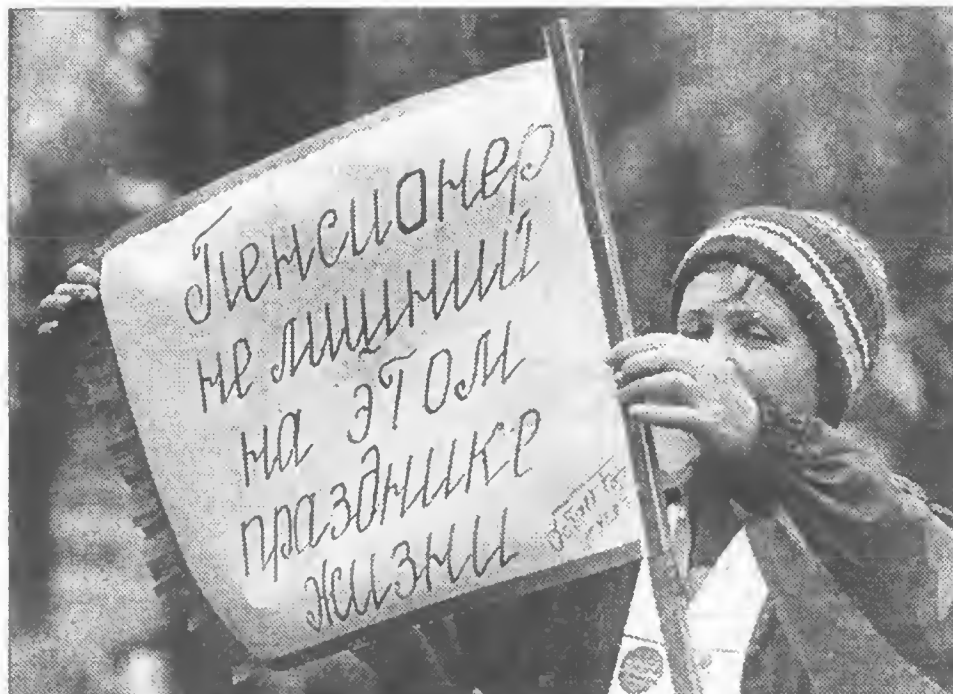 Пенсионер
не лишний
на этом
празднике
жизни